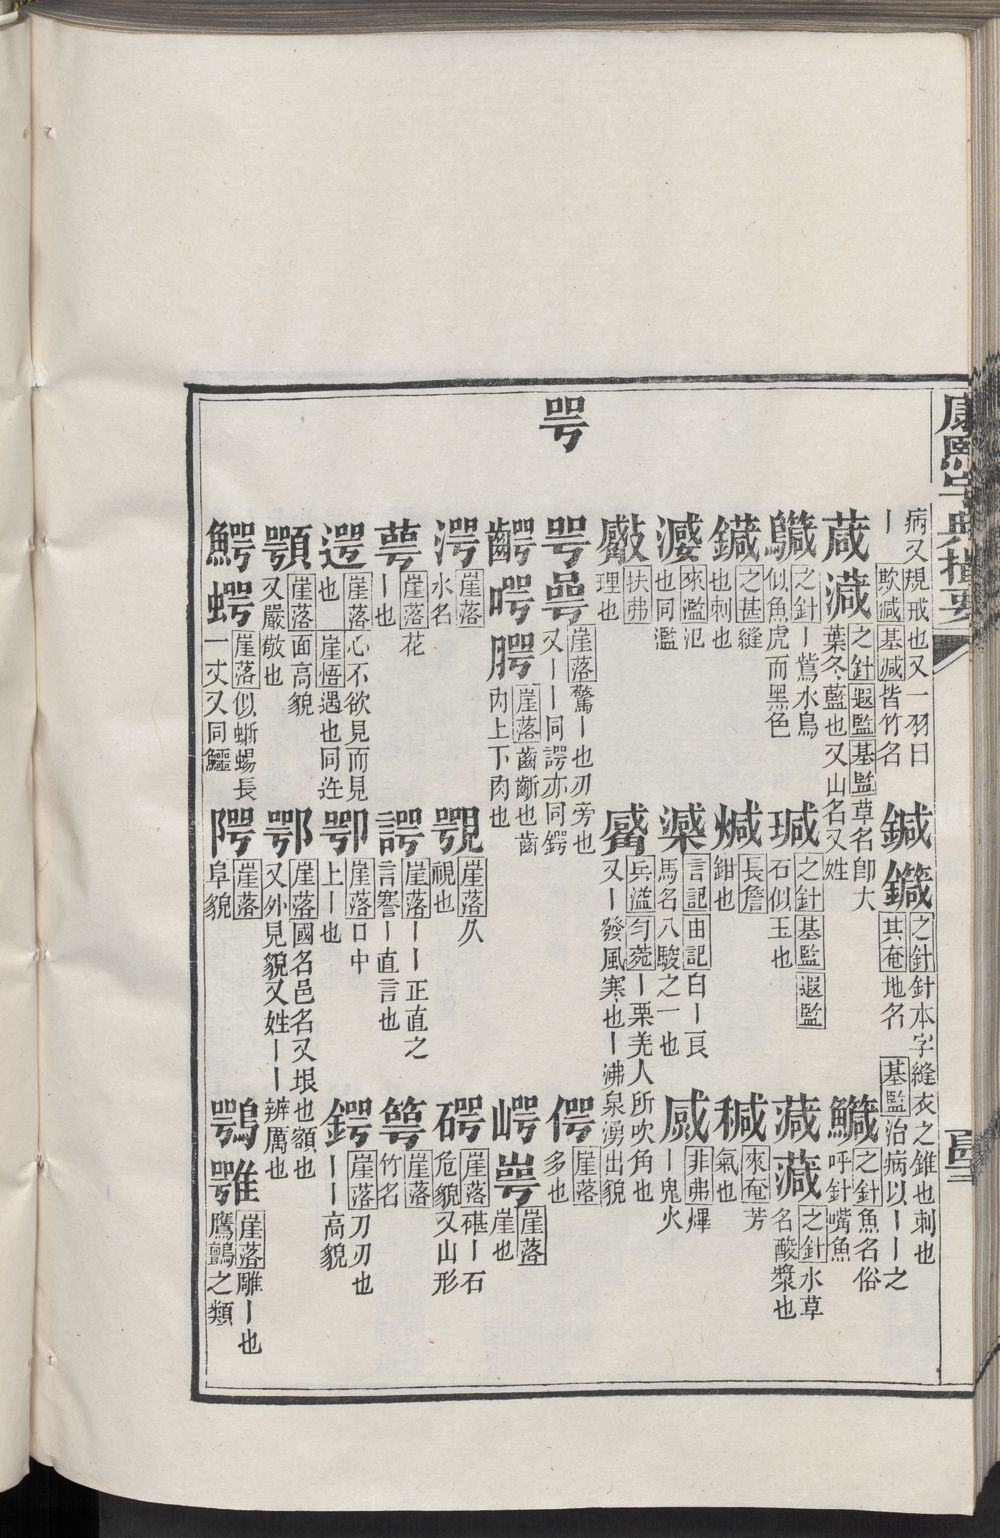 康熙字典撮要
病又規戒也又一羽曰丨欺減基減皆竹名
鍼鑯之針針本字縫衣之錐也刺也其奄地名基監治病以丨丨之
葴㵴之針遐監基監草名卽大葉冬藍也又山名又姓
鱵之針魚名俗呼針嘴魚
之針丨鷥水鳥似魚虎而黑色
瑊之針基監遐監石似玉也
之針水草名酸漿也
之甚縫也刺也
㶰長詹鉗也
來奄芳氣也
來濫氾也同濫
言記由記白丨㠯馬名八駿之一也
非弗煇丨鬼火
扶弗理也
兵溢勻菀丨栗羌人所吹角也又丨發風寒也丨沸泉湧出貌
咢
咢㗁崖落驚丨也刃旁也又丨丨同諤亦同鍔
偔崖落多也
齶㗁腭崖落齒齗也齒內上下肉也
崿崖落崖也
湂崖落水名
覨崖落久視也
碍崖落碪丨石危貌又山形
蕚崖落花丨也
諤崖落丨丨正直之言謇丨直言也
崖落竹名
遻崖落心不欲見而見也崖悟遇也同迕
崖落口中上丨也
鍔崖落刀刃也丨丨高貌
顎崖落面高貌又嚴敬也
鄂崖落國名邑名又垠也額也又外見貌又姓丨丨辨厲也
鰐蝁崖落似蜥蜴長一丈又同鱷
崖落阜貌
鶚崖落雕丨也鷹鸇之類